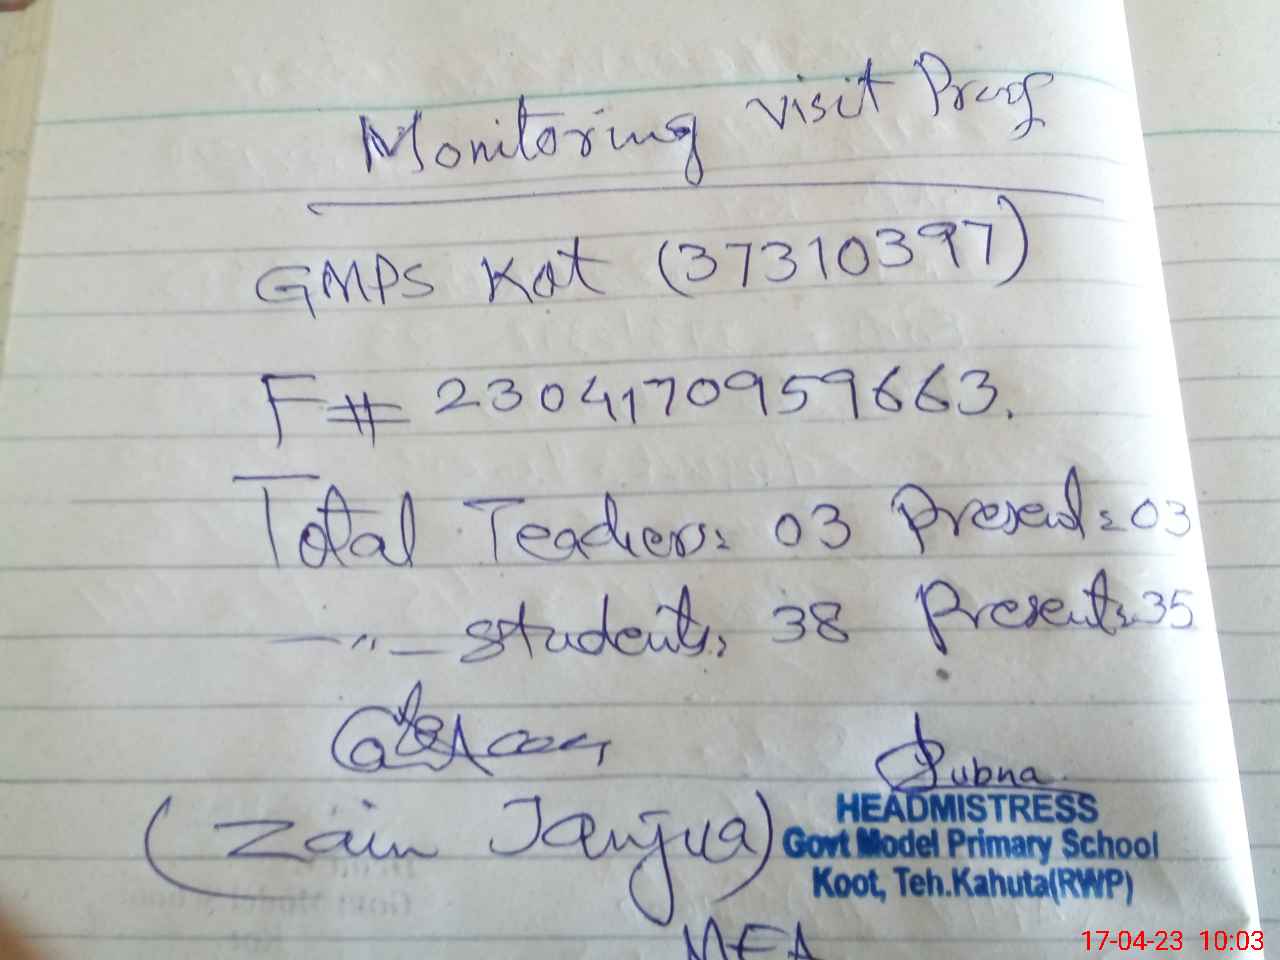 Monitoring visit Proof
GMPS Kot (37310397)
F# 2304170959663.
Total Teachers: 03 Present: 03
—〃— students: 38 Present: 35
Lubna
(Zain Janjua)
HEADMISTRESS
Govt Model Primary School
Koot, Teh.Kahuta(RWP)
MEA
17-04-23 10:03